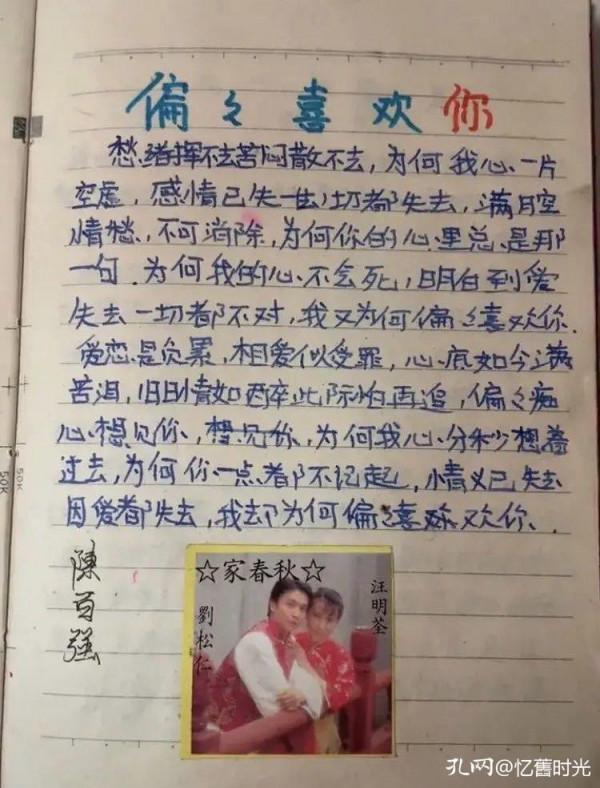 偏々喜欢你
愁绪挥不去苦闷散不去,为何我心、一片
空虚,感情已失去一切都失去,满腔
情愁、不可消除,为何你的心里总是那
一句.为何我的心不会死,明白到爱
失去一切都不对,我又为何偏々喜欢你.
爱恋是负累,相爱似受罪,心底如今满
苦泪,旧日情如醉此际怕再追,偏々痴
心想见你,想见你,为何我心分秒想着
过去,为何你一点都不记起,情义已失去
因爱都失去,我却为何偏々喜欢你.
陳百强
☆家春秋☆
汪明荃
劉松仁
50K
50K
孔网@忆舊时光